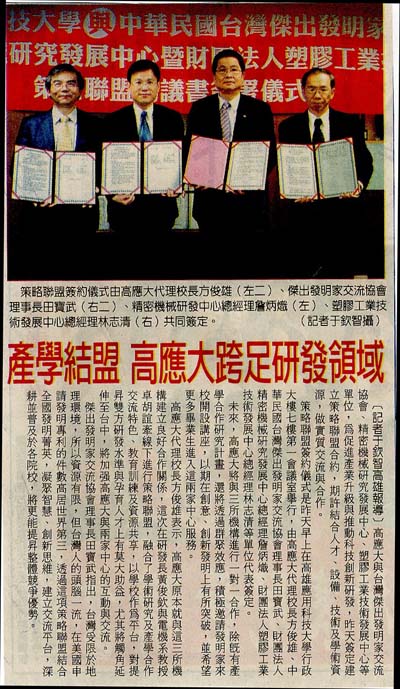 技大學與中華民國台灣傑出發明家
研究發展中心暨財團法人塑膠工業
策 聯盟 議書 署儀式
策略聯盟簽約儀式由高應大代理校長方俊雄（左二）、傑出發明家交流協會
理事長田寶武（右二）、精密機械研發中心總經理詹炳熾（左）、塑膠工業技
術發展中心總經理林志清（右）共同簽定。 （記者于欽智攝）
產學結盟 高應大跨足研發領域
〔記者于欽智高雄報導〕高應大與台灣傑出發明家交流
協會、精密機械研究發展中心、塑膠工業技術發展中心等
單位，為促進產業升級與推動科技創新研發，昨天簽定建
立策略聯盟合約，期許結合人才、設備、技術及學術資
源，做實質交流與合作。
策略聯盟簽約儀式是昨天早上在高雄應用科技大學行政
大樓七樓第一會議室舉行，由高應大代理校長方俊雄、中
華民國台灣傑出發明家交流協會理事長田寶武、財團法人
精密機械研究發展中心總經理詹炳熾、財團法人塑膠工業
技術發展中心總經理林志清等單位代表簽定。
未來，高應大將與三所機構進行一對一合作，除既有產
學合作研究計畫，還將透過群聚效應，積極邀請發明家來
校開設講座，以期在創意、創新發明上有所突破，並希望
更多畢業生進入這兩家中心服務。
高應大代理校長方俊雄表示，高應大原本就與這三所機
構建立良好合作關係，這次在研發長黃俊欽與電機系教授
卓胡誼牽線下進行策略聯盟，融合了學術研究及產學合作
交流特色、教育訓練及資源共享，以學校作為平台，對提
昇雙方研發水準與培育人才上有莫大助益，尤其將觸角延
伸至台中，將加強高應大與兩家中心的互動與交流。
傑出發明家交流協會理事長田寶武指出，台灣受限於地
理環境，所以資源有限，但台灣人的頭腦一流，在美國申
請發明專利的件數高居世界第三，透過這項策略聯盟結合
全國發明菁英，凝聚智慧、創新思維，建立交流平台，深
耕並普及於各院校，將更能提昇整體競爭優勢。